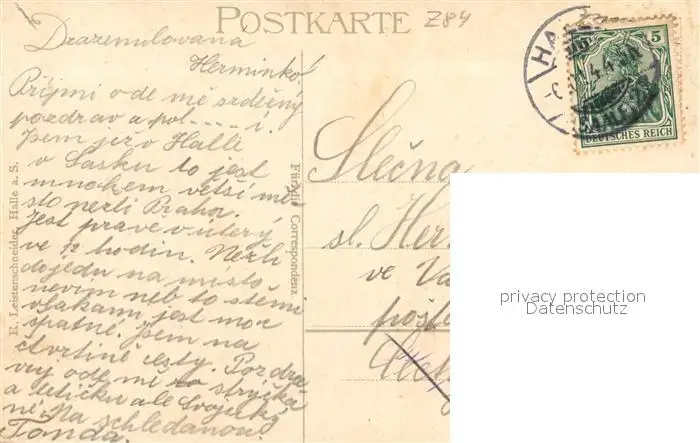 POSTKARTE
Z84
Drazemilovana
Herminko!
Přijmi ode mě srdečný
pozdrav a pol----í.
Jsem již v Halle
v Sasku to jest
mnohem větší mě-
sto nežli Praha.
Jest prave v úterý
ve 12 hodin. Nežli
dojedu na místo
nevim neb to stěmi
vlakami jest moc
špatné. Jsem na
čtvrtině cesty. Pozdra-
vuj ode mě strýčka
a tetičku ale Svojecké
né. Na schledanou!
Tonda.
K. Leistenschneider, Halle a. S.
Für die Correspondenz
Slečna
sl. Her
ve Va
pošt
5
DEUTSCHES REICH
privacy protection
Datenschutz